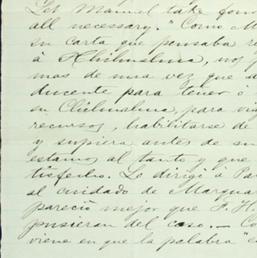 Let Manuel take fon
all necessary." Como M
su carta que pensaba r
á Chihuahua, nos
mas de una vez que s
ducente para tener ó
su Chihuahua, para
recursos, habilitarse de
y supiera antes de su
estamos al tanto y que
tisfecho. Le dirigí a Par
al cuidado de Margua
pareció mejor que F. H
pusieran del caso.— Co
viene en que la palabra e